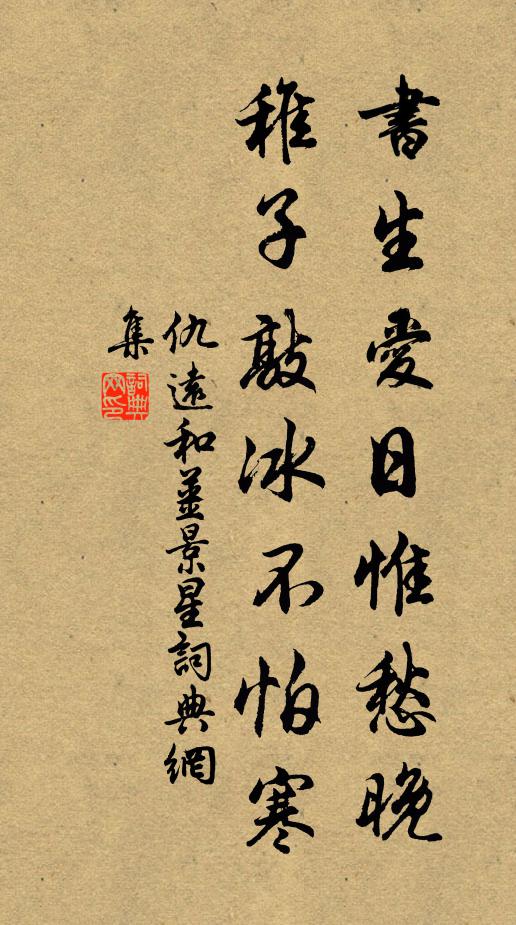 書生愛日惟愁晚
稚子敲冰不怕寒
仇遠和薑景星詞典網
集
詞典網印